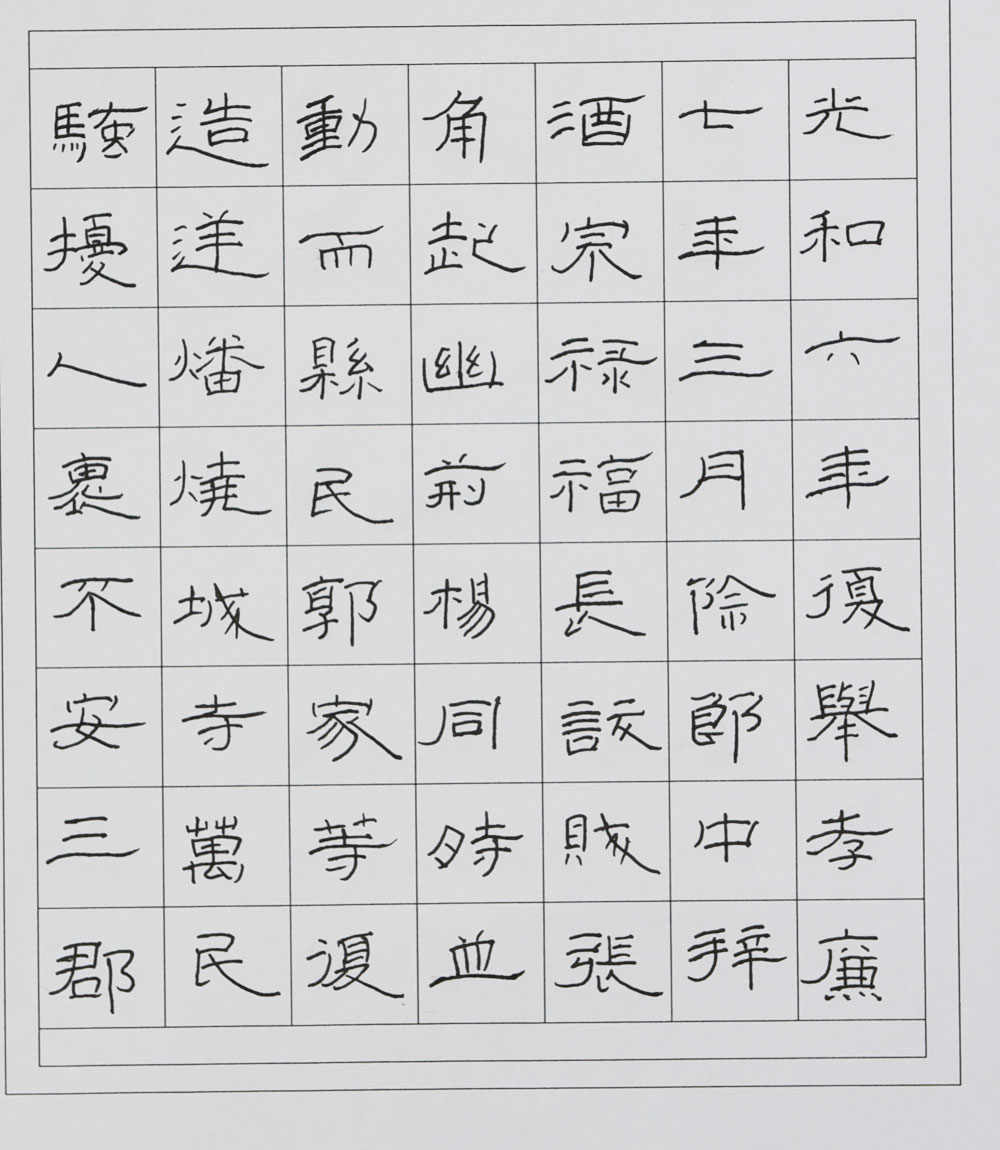 光和六年復舉孝廉
七年三月除郎中拜
酒宗禄福長訞賊張
角起幽荊楊同時並
動而縣民郭家等復
造逆燔燒城寺萬民
騷擾人裹不安三郡